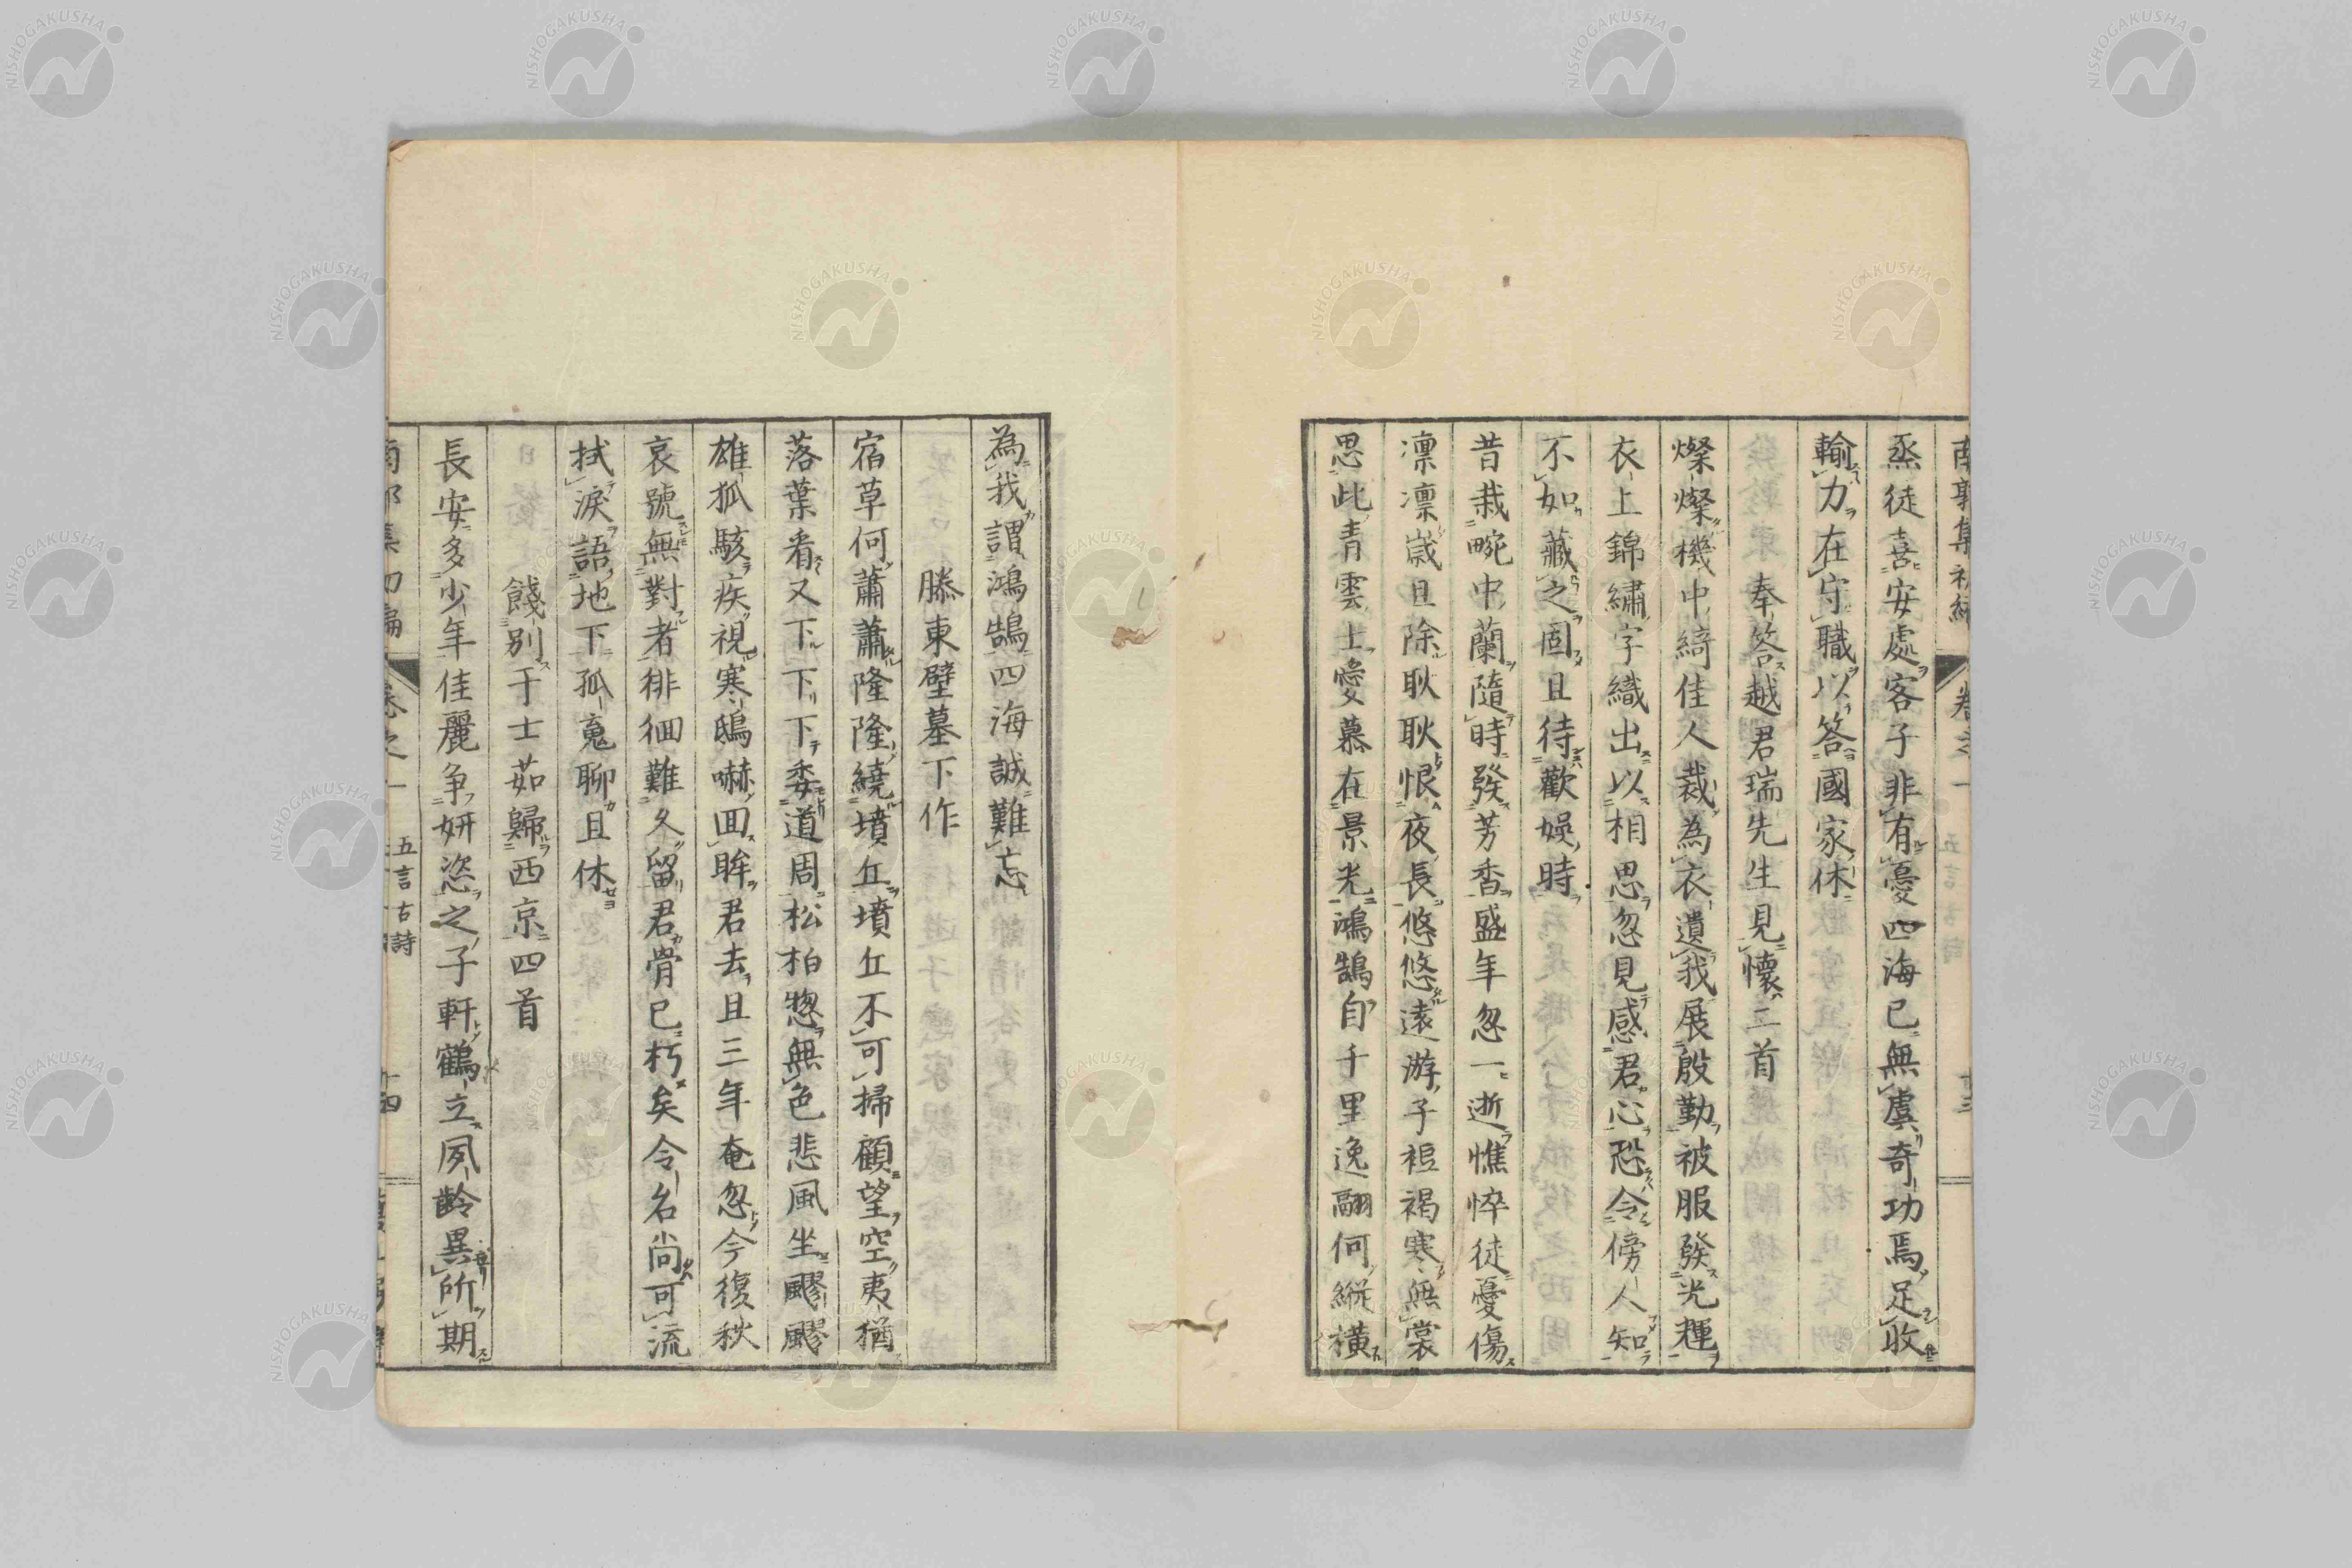 烝徒喜安處客子非有憂四海已無虞奇功焉足收
輸力在守職以答國家休
奉答越君瑞先生見懷二首
燦燦機中綺佳人裁為衣遺我展殷勤被服發光輝
衣上錦繡字織出以相思忽見感君心恐令傍人知
不如藏之固且待歡娛時
昔栽畹中蘭隨時發芳香盛年忽一逝憔悴徒憂傷
凛凛歲且除耿耿恨夜長悠悠遠游子裋褐寒無裳
思此青雲士愛慕在景光鴻鵠自千里逸翮何縱橫
為我謂鴻鵠四海誠難忘
滕東壁墓下作
宿草何蕭蕭隆隆繞墳丘墳丘不可掃顧望空夷猶
落葉看又下下下委道周松柏惣無色悲風坐飂飂
雄狐駭疾視寒鴟嚇回眸君去且三年奄忽今復秋
哀號無對者徘徊難久留君骨已朽矣令名尚可流
拭淚語地下孤寃聊且休
餞別于士茹歸西京四首
長安多少年佳麗爭妍恣之子軒鶴立夙齡異所期
卷之一
五言古詩
NISHOGAKUSHA